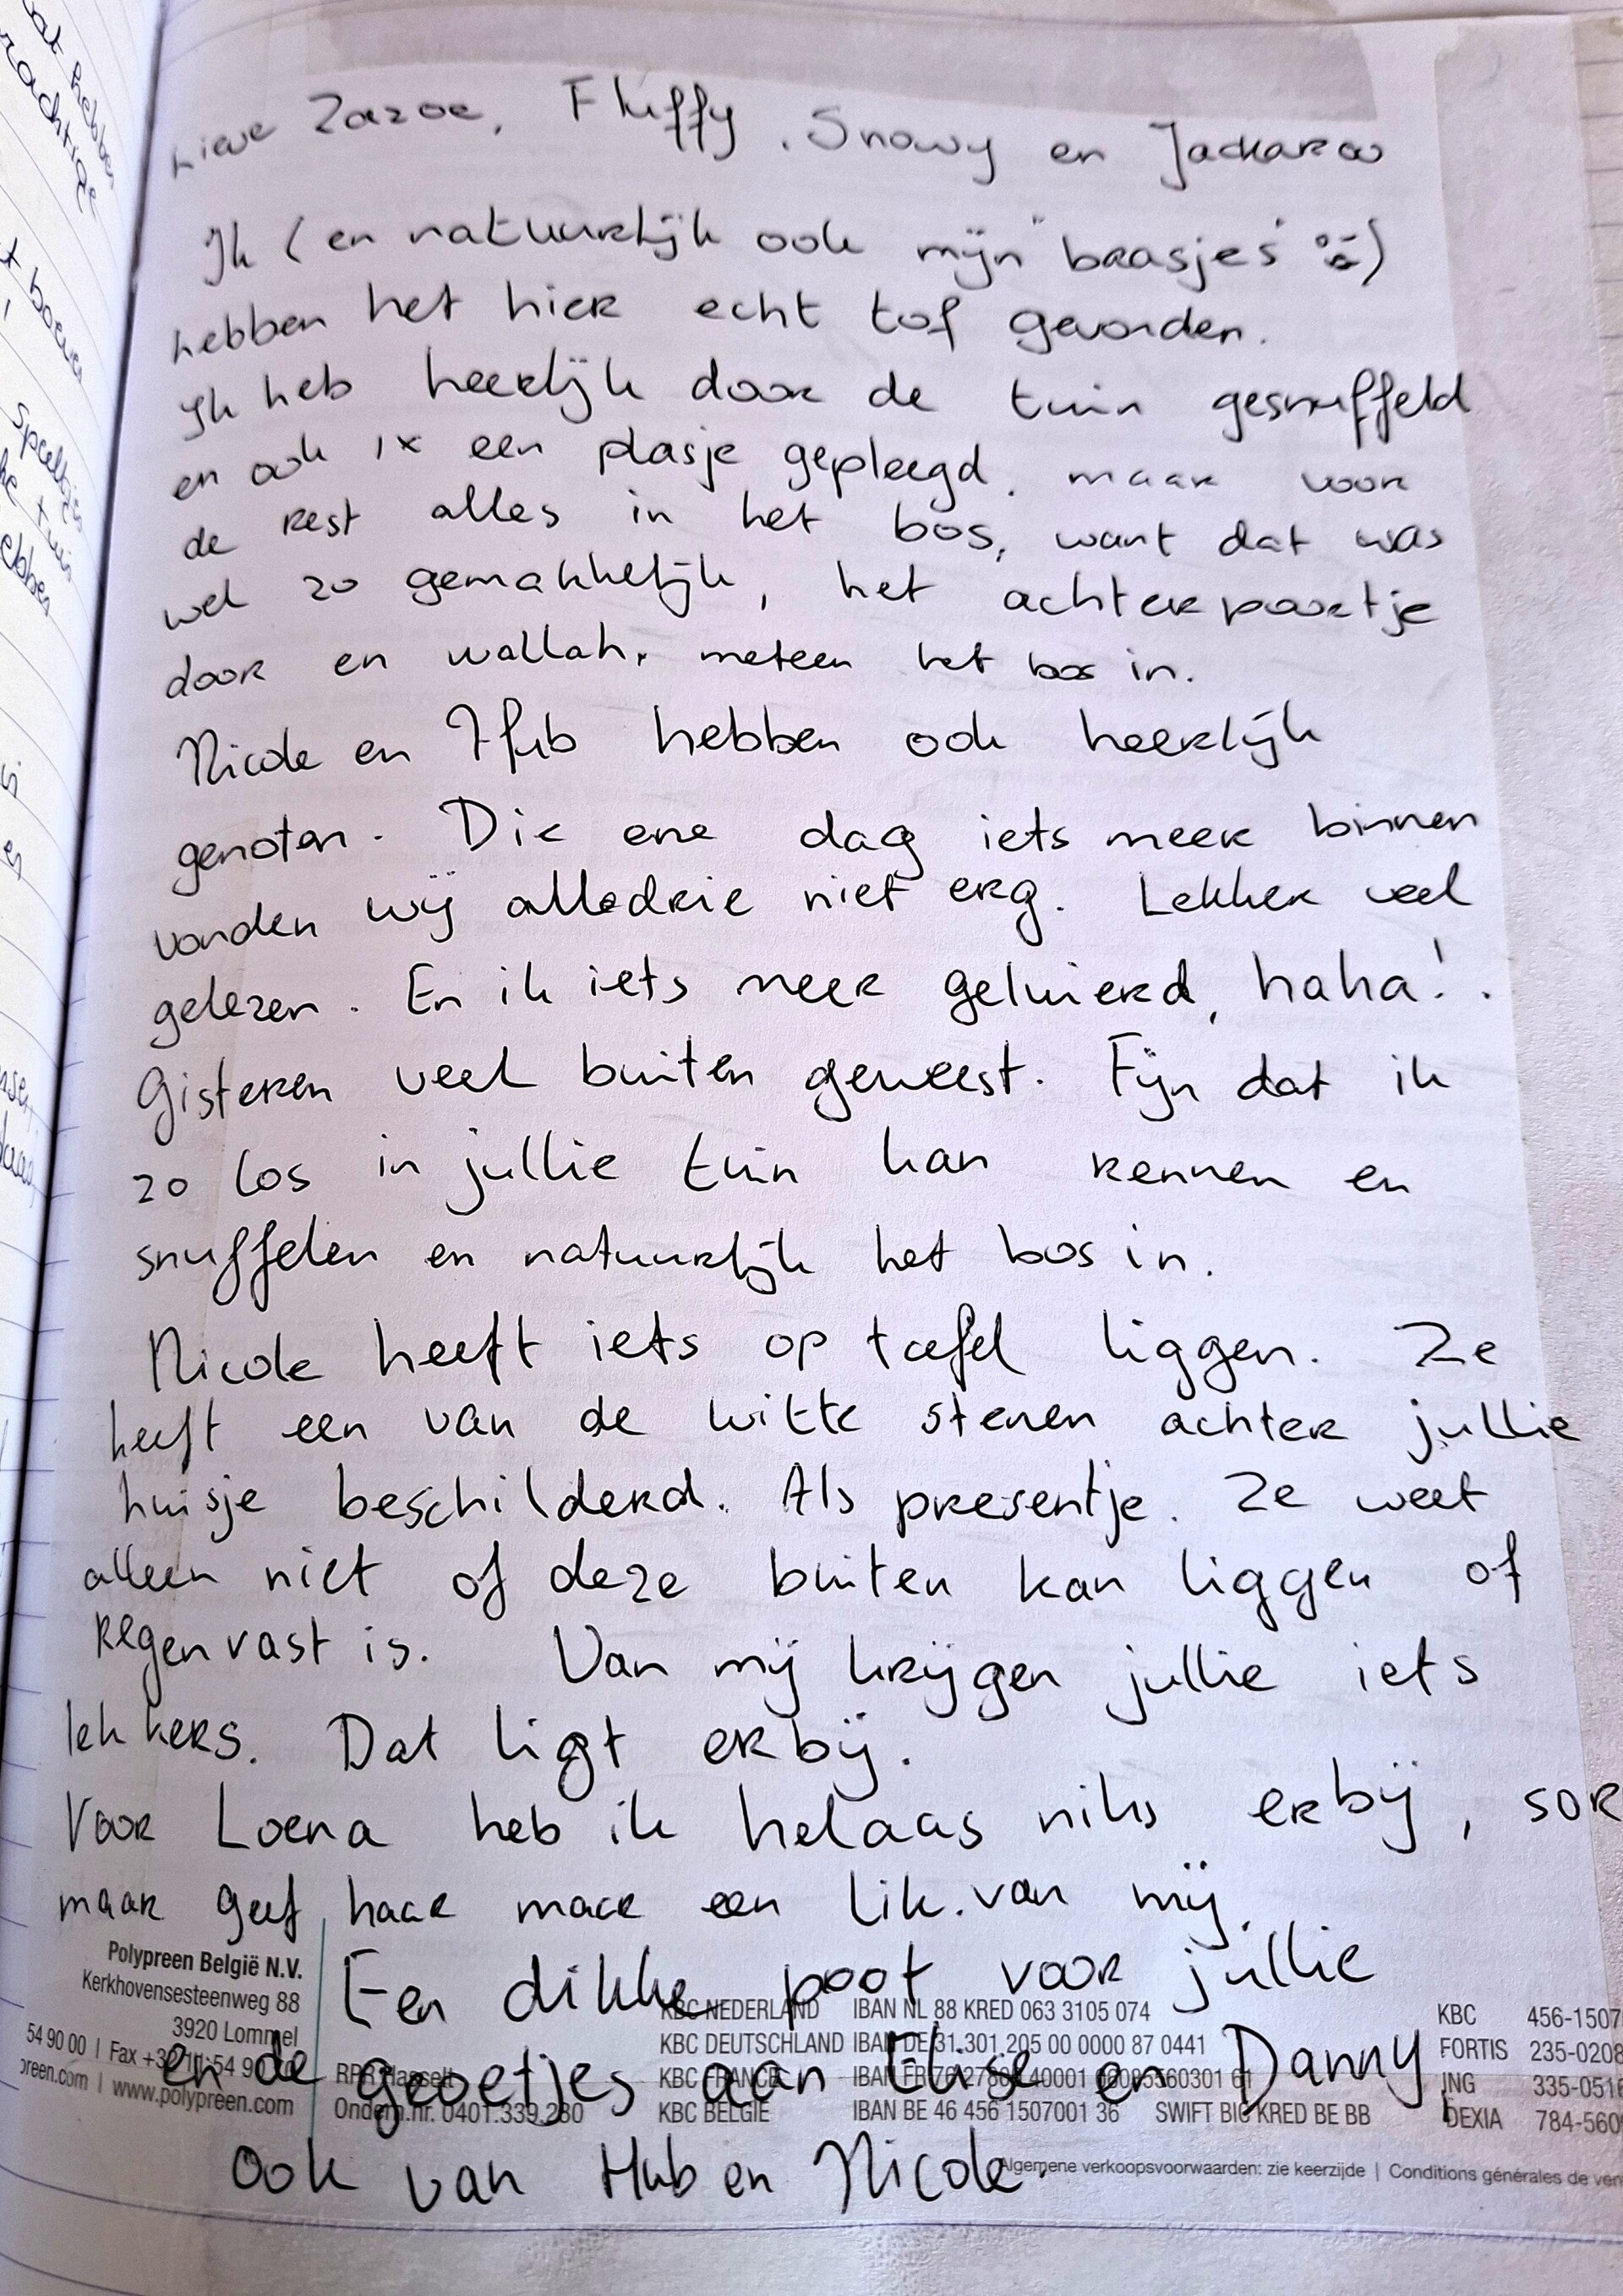 Lieve Zazoe, Fluffy, Snowy en Jackaroo
Ik (en natuurlijk ook mijn "baasjes" :-)
hebben het hier echt tof gevonden.
Ik heb heerlijk door de tuin gesnuffeld
en ook 1x een plasje gepleegd, maar voor
de rest alles in het bos, want dat was
wel zo gemakkelijk, het achterpoortje
door en wallah, meteen het bos in.
Nicole en Hub hebben ook heerlijk
genoten. Die ene dag iets meer binnen
vonden wij alledrie niet erg. Lekker veel
gelezen. En ik iets meer geluierd, haha!.
Gisteren veel buiten geweest. Fijn dat ik
zo los in jullie tuin kan rennen en
snuffelen en natuurlijk het bos in.
Nicole heeft iets op tafel liggen. Ze
heeft een van de witte stenen achter jullie
huisje beschilderd. Als presentje. Ze weet
alleen niet of deze buiten kan liggen of
regenvast is. Van mij krijgen jullie iets
lekkers. Dat ligt erbij.
Voor Loena heb ik helaas niks erbij, sor
maar geef haar maar een lik van mij.
Een dikke poot voor jullie
en de groetjes aan Elise en Danny,
ook van Hub en Nicole.
Polypreen België N.V.
Kerkhovensesteenweg 88
3920 Lommel
54 90 00 | Fax +32 11 54 9
preen.com | www.polypreen.com
RPR Hasselt
Ondern.nr. 0401.339.230
KBC NEDERLAND IBAN NL 88 KRED 063 3105 074
KBC DEUTSCHLAND IBAN DE 31 301 205 00 0000 87 0441
KBC FRANCE IBAN FR 76 40001
KBC BELGIE IBAN BE 46 456 1507001 36 SWIFT BIC KRED BE BB
KBC 456-1507
FORTIS 235-0208
ING 335-0516
DEXIA 784-560
Algemene verkoopsvoorwaarden: zie keerzijde | Conditions générales de ven